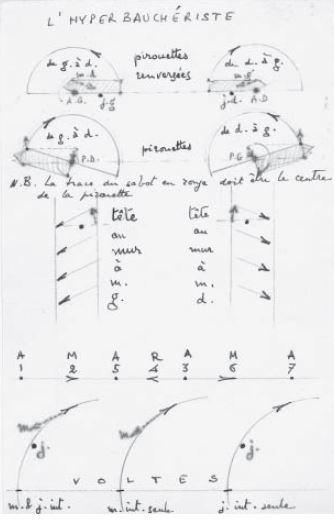 L'HYPERBAUCHÉRISTE
de g. à d. pirouettes de d. à g.
renversées
A.G. j.g j.d. A.D.
de g. à d. pirouettes de d. à g.
P.D. P.G
N.B. La trace du sabot en rouge doit être le centre
de la pirouette
tête tête
au au
mur mur
à à
m. m.
g. d.
A M A R A M A
1 2 5 4 3 6 7
j. j.
VOLTES
m. & j. int. m. int. seule j. int. seule